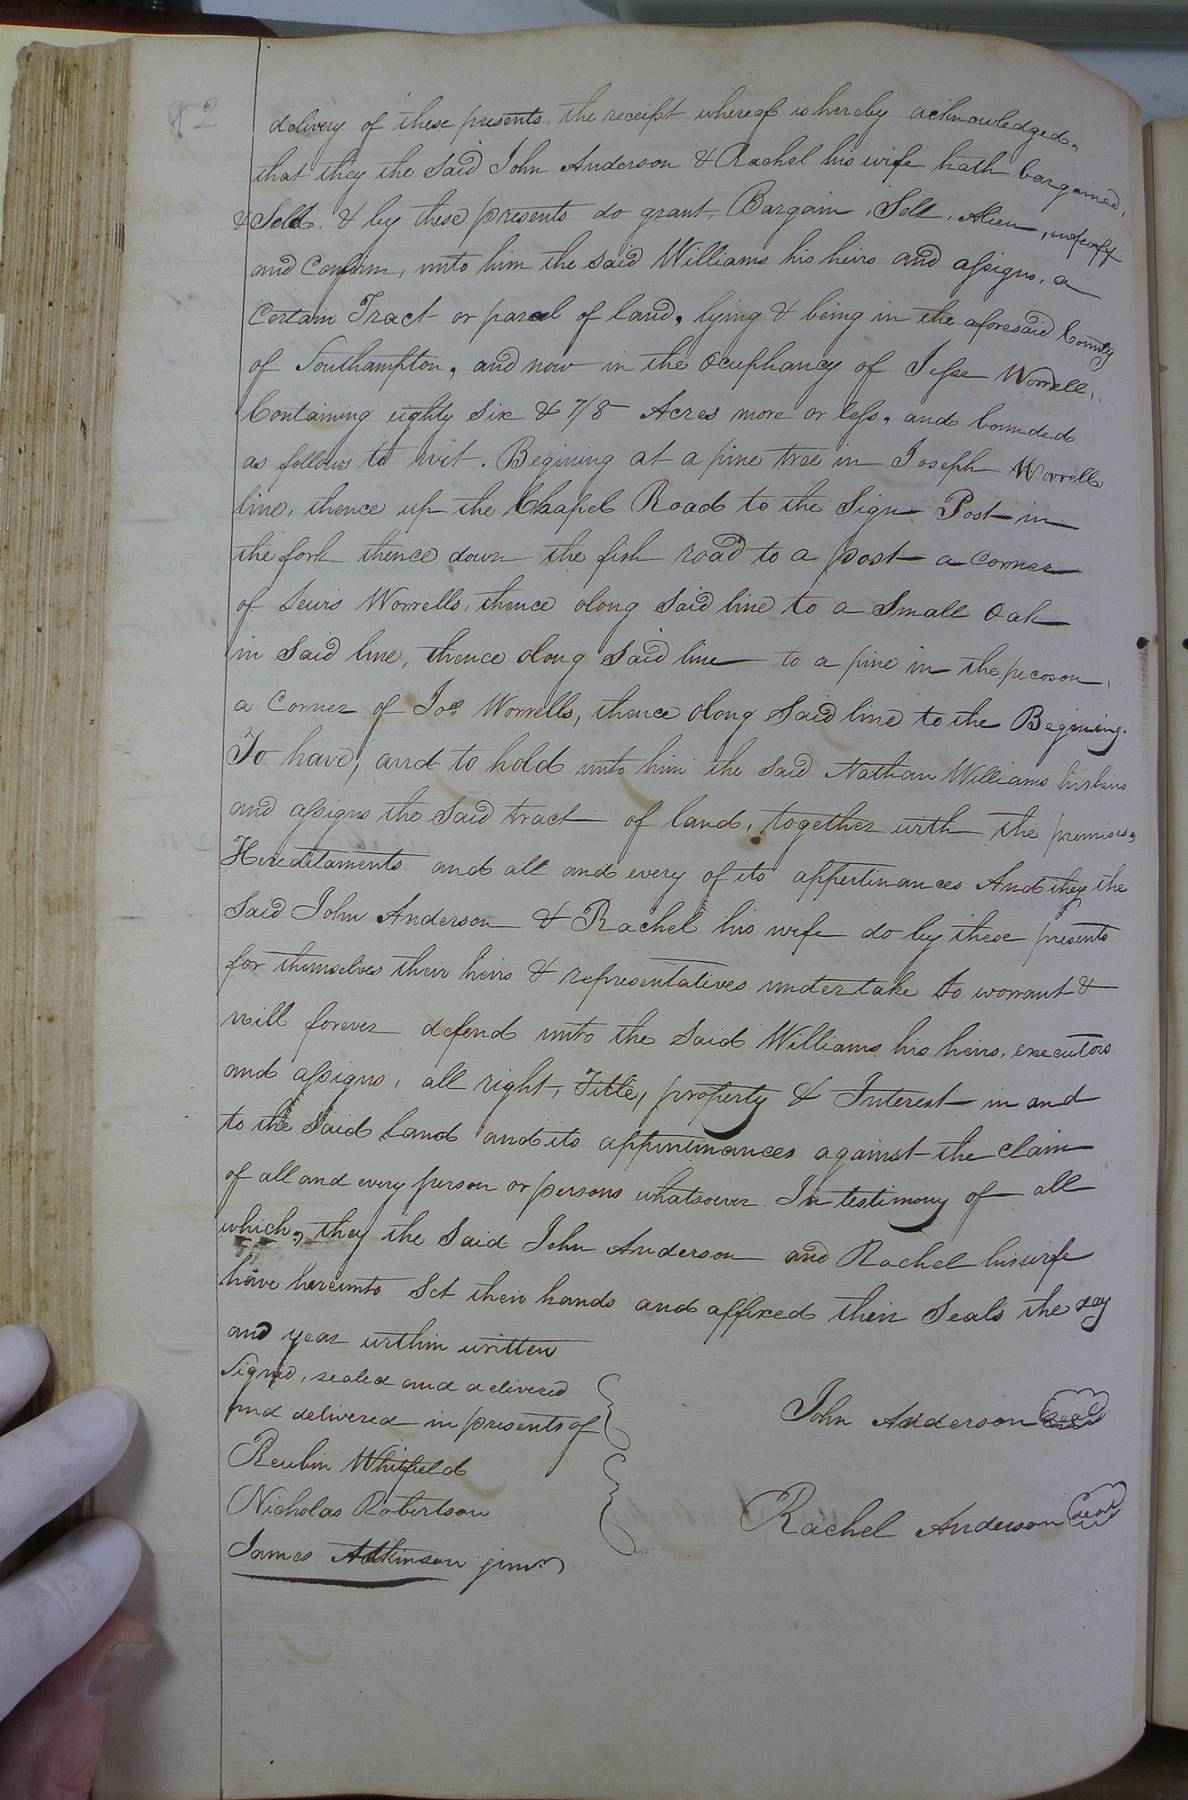 2
delivery of these presents, the receipt whereof is hereby acknowledged,
that they the said John Anderson & Rachel his wife hath bargained,
& Sold. & by these presents do grant, Bargain, Sell, Alien,
and Confirm, unto him the said Williams his heirs and assigns, a
Certain Tract or parcel of land, lying & being in the aforesaid County
of Southampton, and now in the Ocuphancy of Jesse Worrell,
Containing eighty six & 7/8 Acres more or less, and bounded
as follows to wit. Begining at a pine tree in Joseph Worrells
line, thence up the Chapel Road to the Sign Post in
the fork thence down the fish road to a post a corner
of Lewis Worrells, thence along said line to a Small Oak
in said line, thence along said line to a pine in the pecoson,
a Corner of Jos Worrells, thence along said line to the Begining.
To have, and to hold unto him the said Nathan Williams his heirs
and assigns the said tract of land, together with the premises,
Hereditaments and all and every of its appertinances And they the
said John Anderson & Rachel his wife do by these presents
for themselves their heirs & representatives undertake to worrant &
will forever defend unto the said Williams his heirs, executors
and assigns, all right, Title, property & Interest in and
to the said land and its appurtinances against the claim
of all and every person or persons whatsoever In testimony of all
which, they the said John Anderson and Rachel his wife
have hereunto Set their hands and affixed their Seals the day
and year within written
Signed, sealed and delivered
and delivered in presents of
John Anderson Seal
Reubin Whitfield
Nicholas Robertson
Rachel Anderson Seal
James Adkinson junr